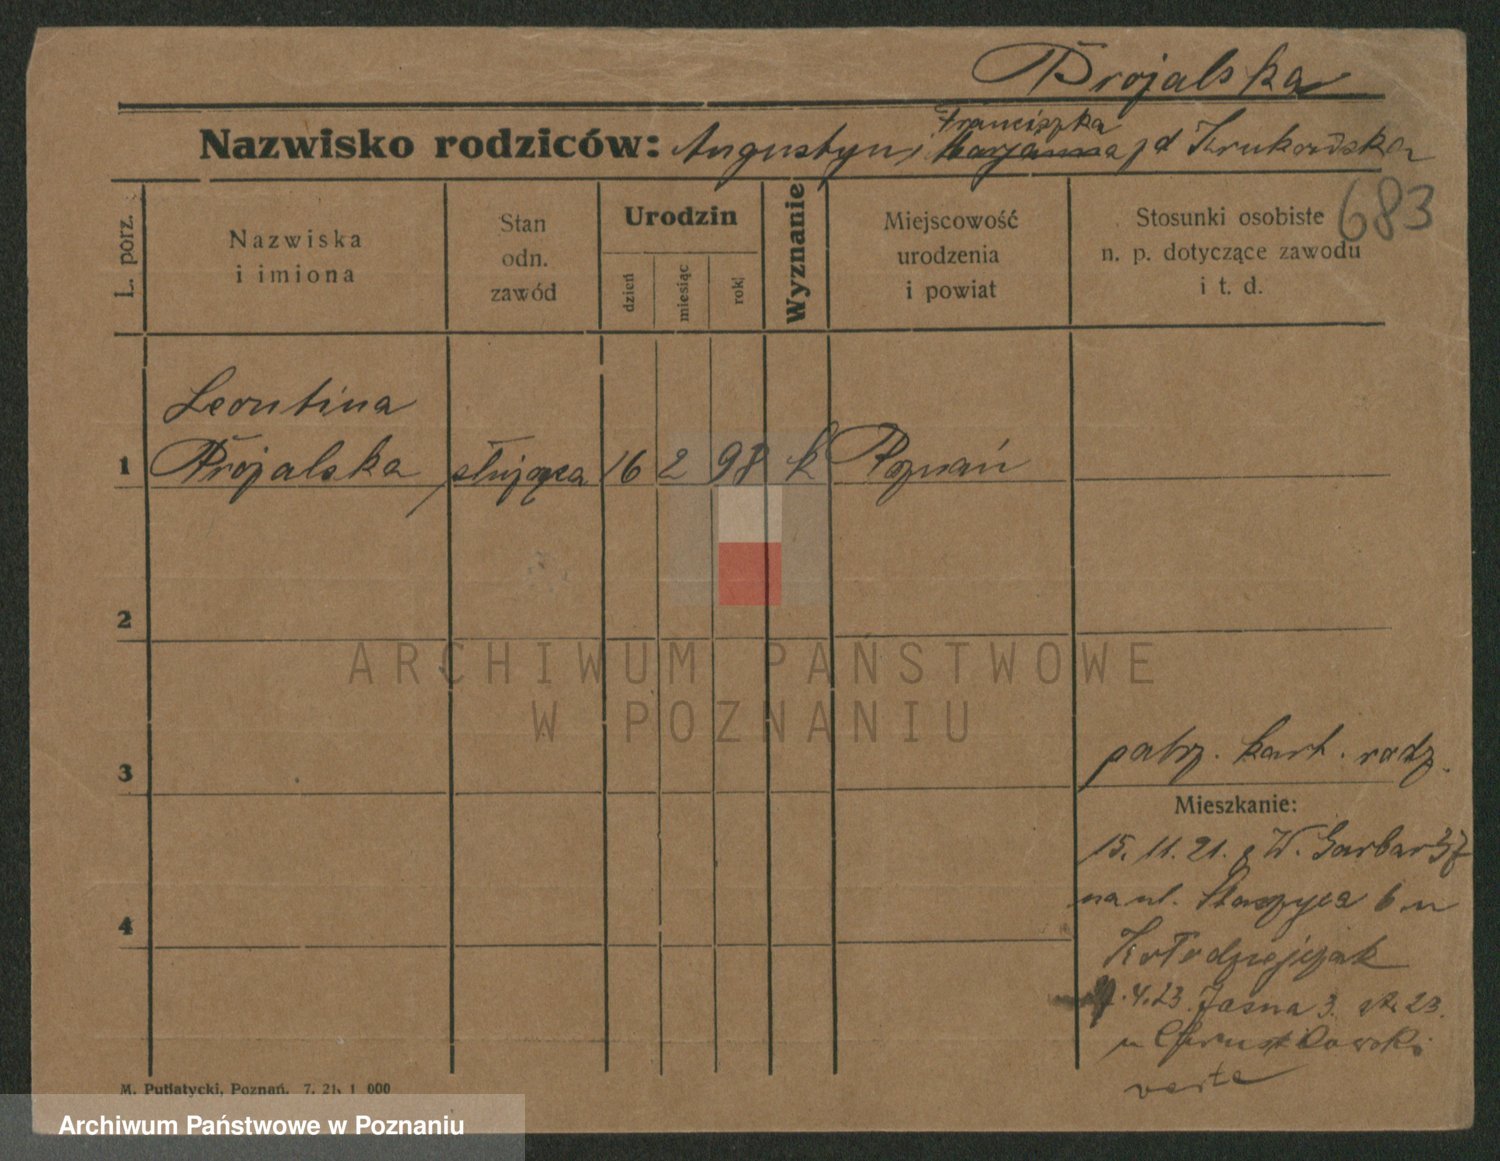 Projalska
Franciszka
Nazwisko rodziców: Augustyn, Marjanna zd Krukowska
683
L. porz.
Nazwiska
i imiona
Stan
odn.
zawód
Urodzin
dzień
miesiąc
rok
Wyznanie
Miejscowość
urodzenia
i powiat
Stosunki osobiste
n. p. dotyczące zawodu
i t. d.
Leontina
1 Projalska służąca 16 2 98 k Poznań
2
ARCHIWUM PAŃSTWOWE
W POZNANIU
patrz. kart. rodz.
3
Mieszkanie:
15.11.21. z W. Garbar 37
na ul. Staszyca 6 u
4
Kołodziejczak
.4.23. Jasna 3. 23.
u
verte
M. Putiatycki, Poznań. 7. 21, 1 000
Archiwum Państwowe w Poznaniu